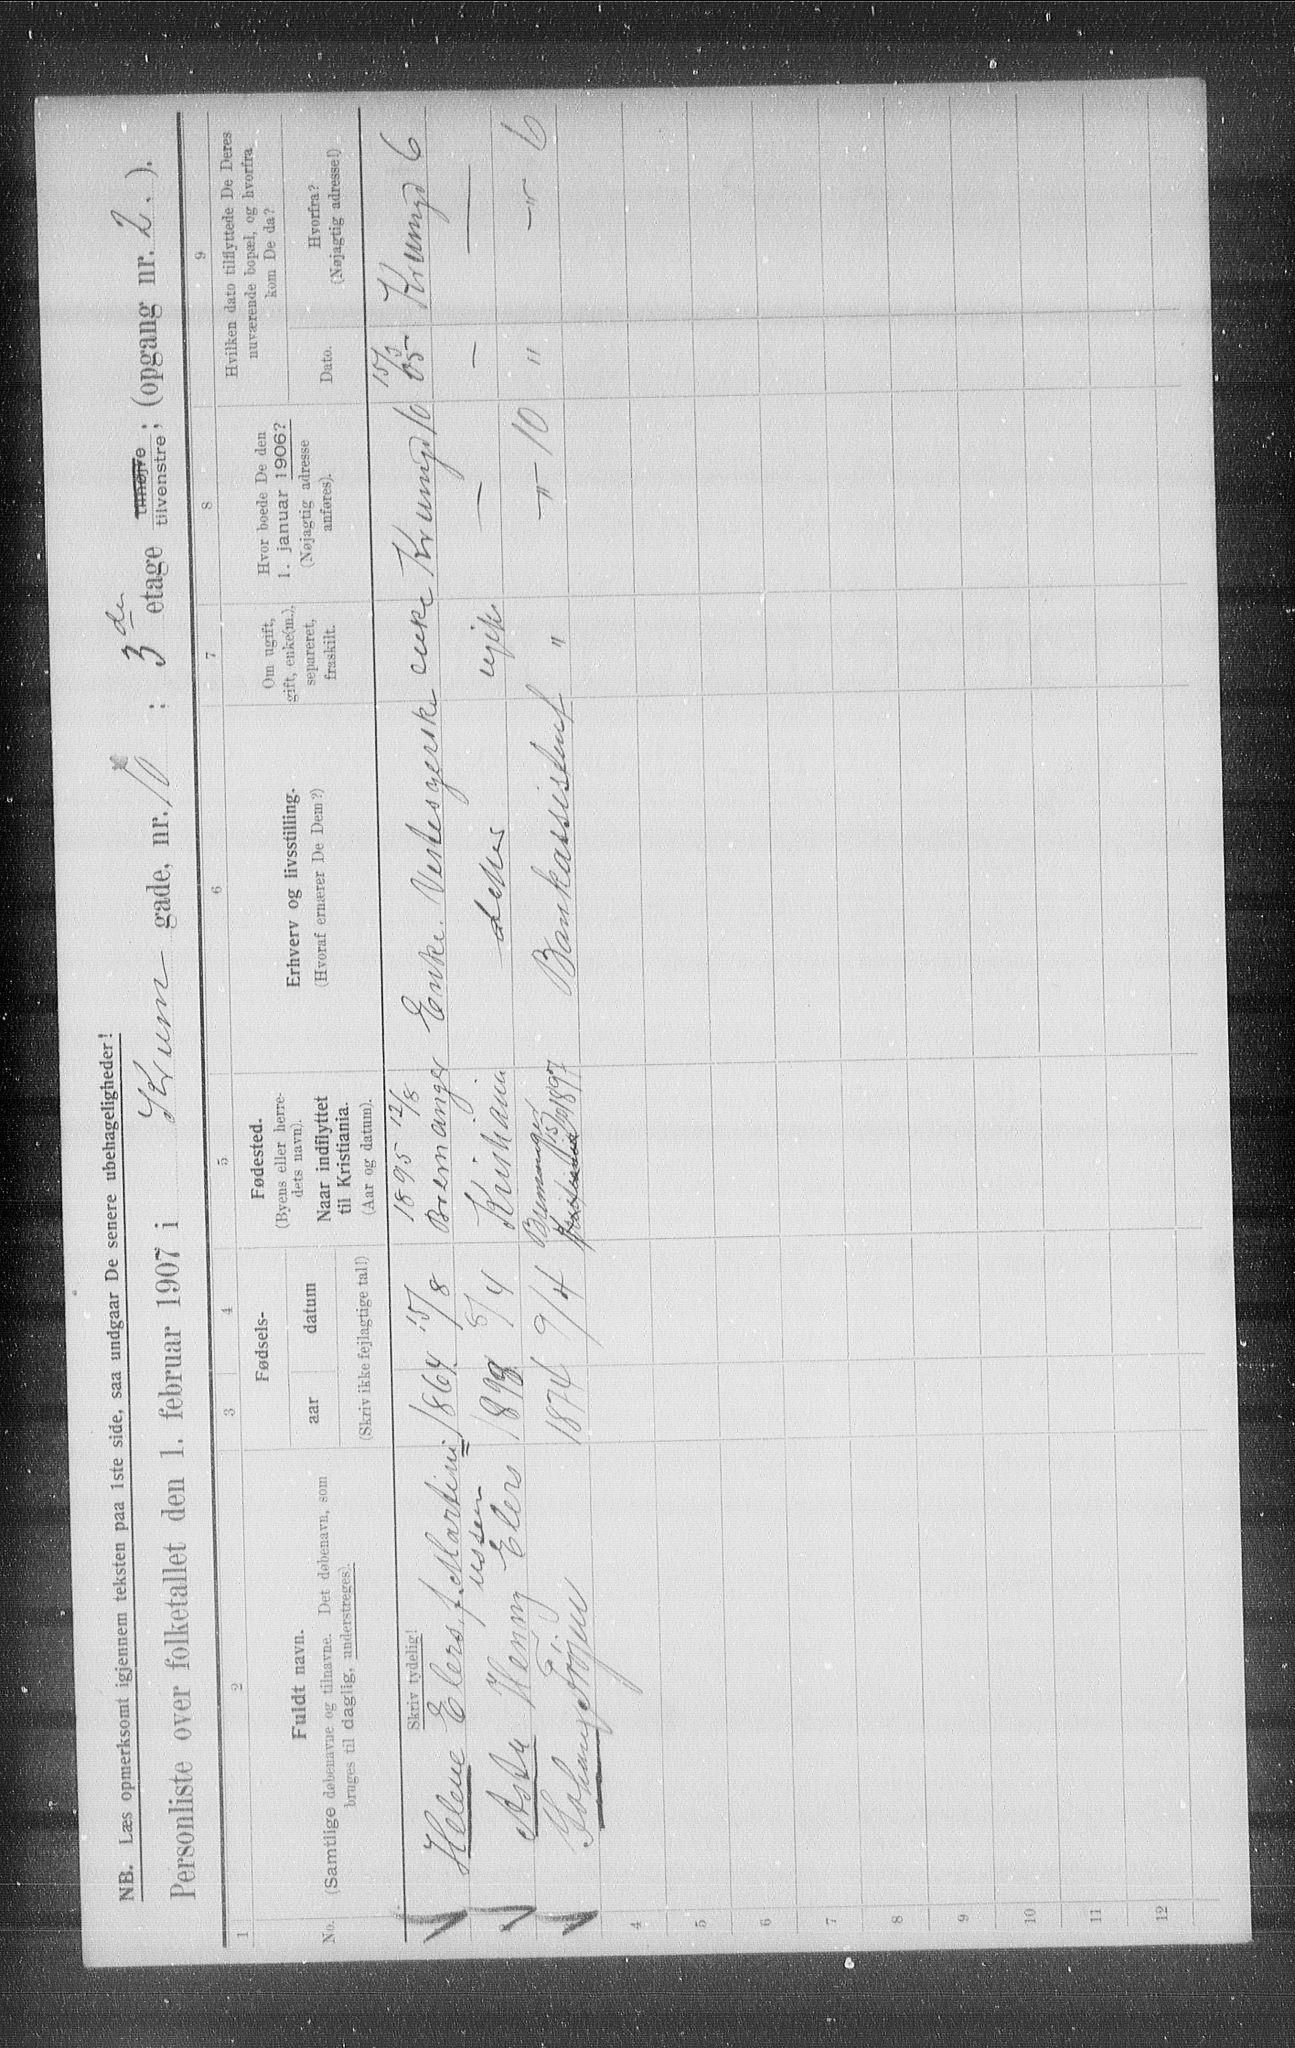 NB. Læs opmerksomt igjennem teksten paa 1ste side, saa undgaar De senere ubehageligheder!
Personliste over folketallet den 1. februar 1907 i Krum gade, nr. 10 : 3 de etage tilhøjre tilvenstre; (opgang nr. 2. ).
1 2 3 4 5 6 7 8 9
No.
Fuldt navn.
(Samtlige døbenavne og tilnavne. Det døbenavn, som
bruges til daglig, understreges).
Skriv tydelig!
Fødsels-
aar datum
(Skriv ikke fejlagtige tal!)
Fødested.
(Byens eller herre-
dets navn).
Naar indflyttet
til Kristiania.
(Aar og datum).
Erhverv og livsstilling.
(Hvoraf ernærer De Dem?)
Om ugift,
gift, enke(m.),
separeret,
fraskilt.
Hvor boede De den
1. januar 1906?
(Nøjagtig adresse
anføres).
Hvilken dato tilflyttede De Deres
nuværende bopæl, og hvorfra
kom De da?
Dato.
Hvorfra?
(Nøjagtig adresse!)
1895 12/8 15/3
Helene Elers f. Martini 1864 15/8 Bremanger Enke. Vestesyerske enke Krumgd 10 05 Krumgd 6
ussen
Asta Henny Elers 1898 8/4 Kristiania ugift — — —
Bremanger
Johan 1874 9/4 15/ 1897 Bankassistent " -"- 10 " -"- 6
4
5
6
7
8
9
10
11
12